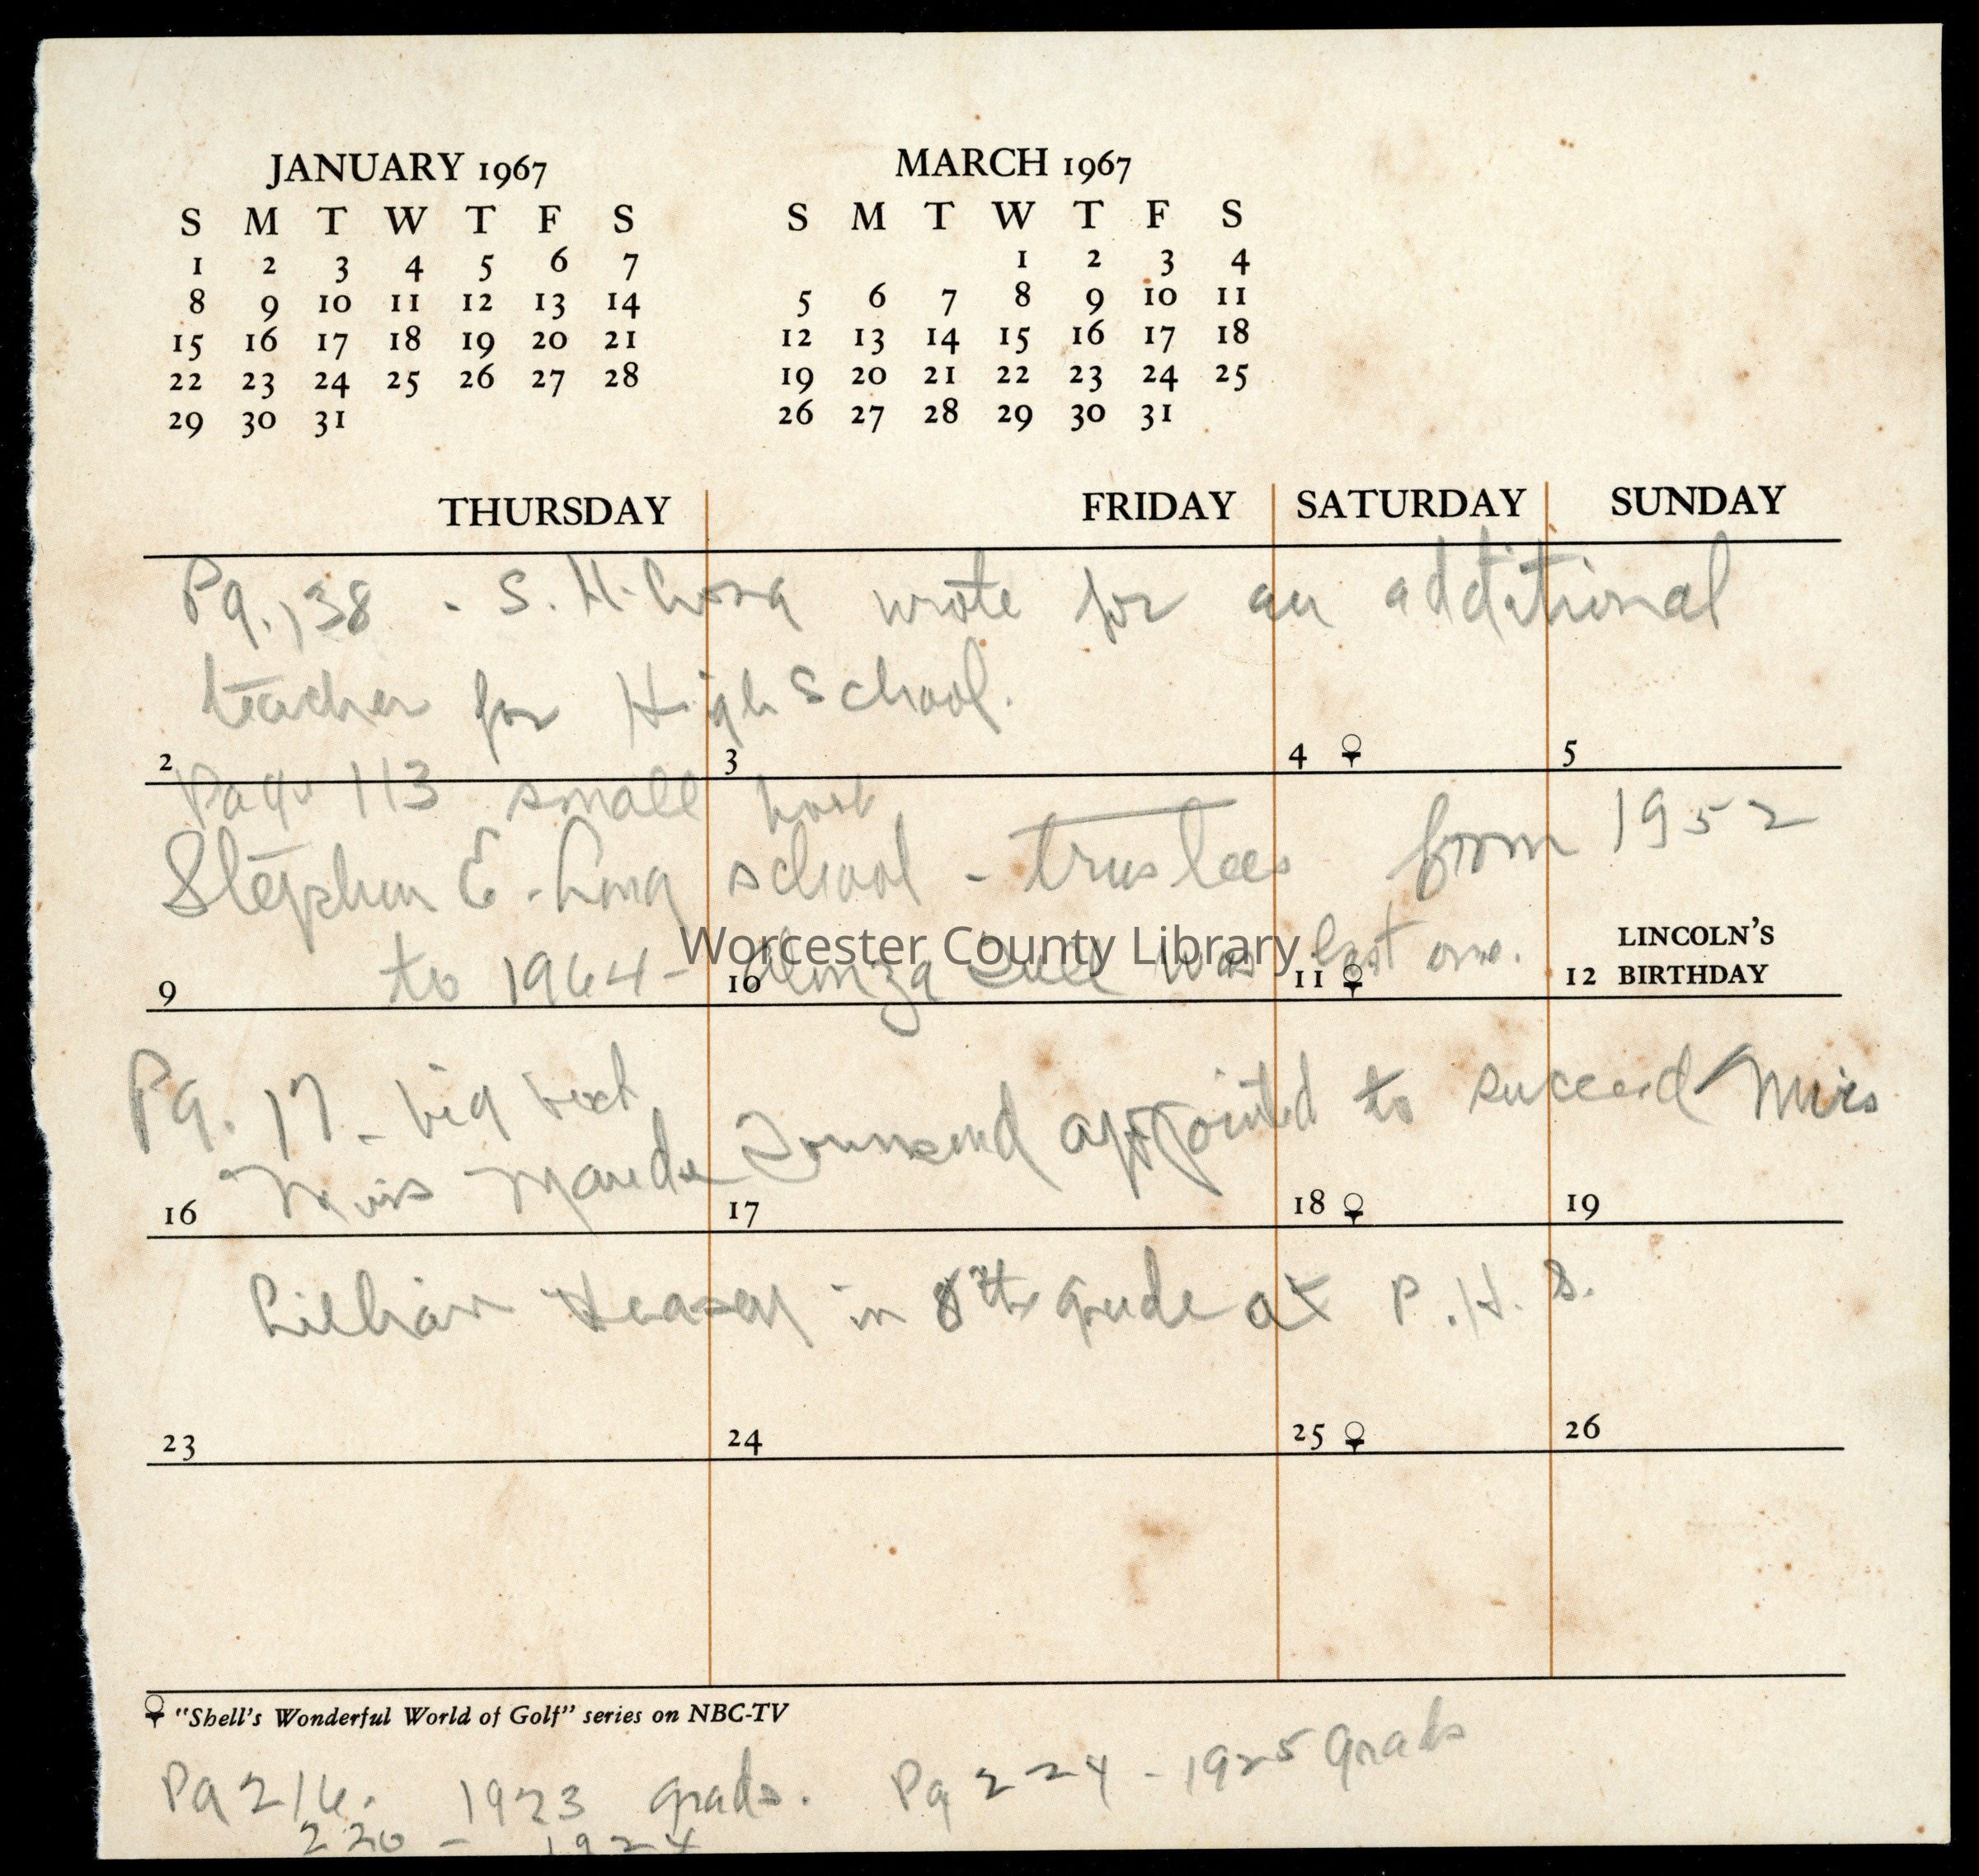 JANUARY 1967
S M T W T F S
1 2 3 4 5 6 7
8 9 10 11 12 13 14
15 16 17 18 19 20 21
22 23 24 25 26 27 28
29 30 31
MARCH 1967
S M T W T F S
1 2 3 4
5 6 7 8 9 10 11
12 13 14 15 16 17 18
19 20 21 22 23 24 25
26 27 28 29 30 31
THURSDAY FRIDAY SATURDAY SUNDAY
Pg. 138 - S. H. Long wrote for an additional
teacher for High School.
2 3 4 5
Page 113 small book
Stephen E. Long school - trustees from 1952
to 1964 - was last one.
Worcester County Library
9 10 11 12 LINCOLN'S BIRTHDAY
Pg. 17 - big book
Miss Maude Townsend appointed to succeed Miss
16 17 18 19
Lillian Veasey in 8th grade at P. H. S.
23 24 25 26
"Shell's Wonderful World of Golf" series on NBC-TV
Pg 216. 1923 grads. Pg 224 - 1925 grads
220 - 1924